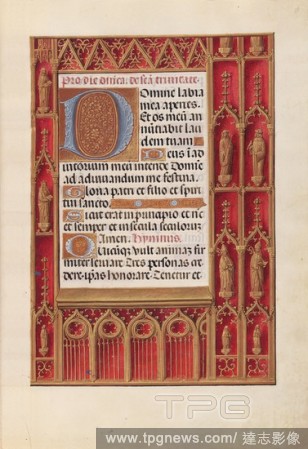 Pro die dnica. de scā trinitate.
Domine labia
mea aperies.
Et os meū an
nūtiabit lau
dem tuam
Deus ī ad
iutorium meū intende Domīe
ad adiuuandum me festina.
Gloria patri et filio et spiri
tui sancto
Sicut erat in prīncipio et nūc
et semper et in secula seculorū
Amen. Hymnus.
Quicūq; vult animaz fir
miter
Tres personas cre
dere ipsas honorare Tenetur et
TPG
www.tpgnews.com/ 達志影像